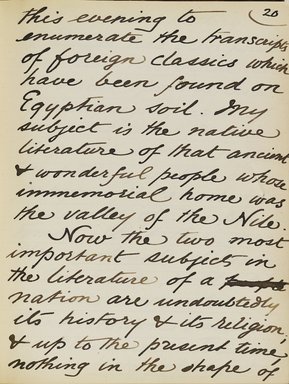 20
this evening to
enumerate the transcripts
of foreign classics which
have been found on
Egyptian soil. My
subject is the native
literature of that ancient
& wonderful people whose
immemorial home was
the valley of the Nile.
Now the two most
important subjects in
the literature of a
nation are undoubtedly
its history & its religion,
& up to the present time
nothing in the shape of